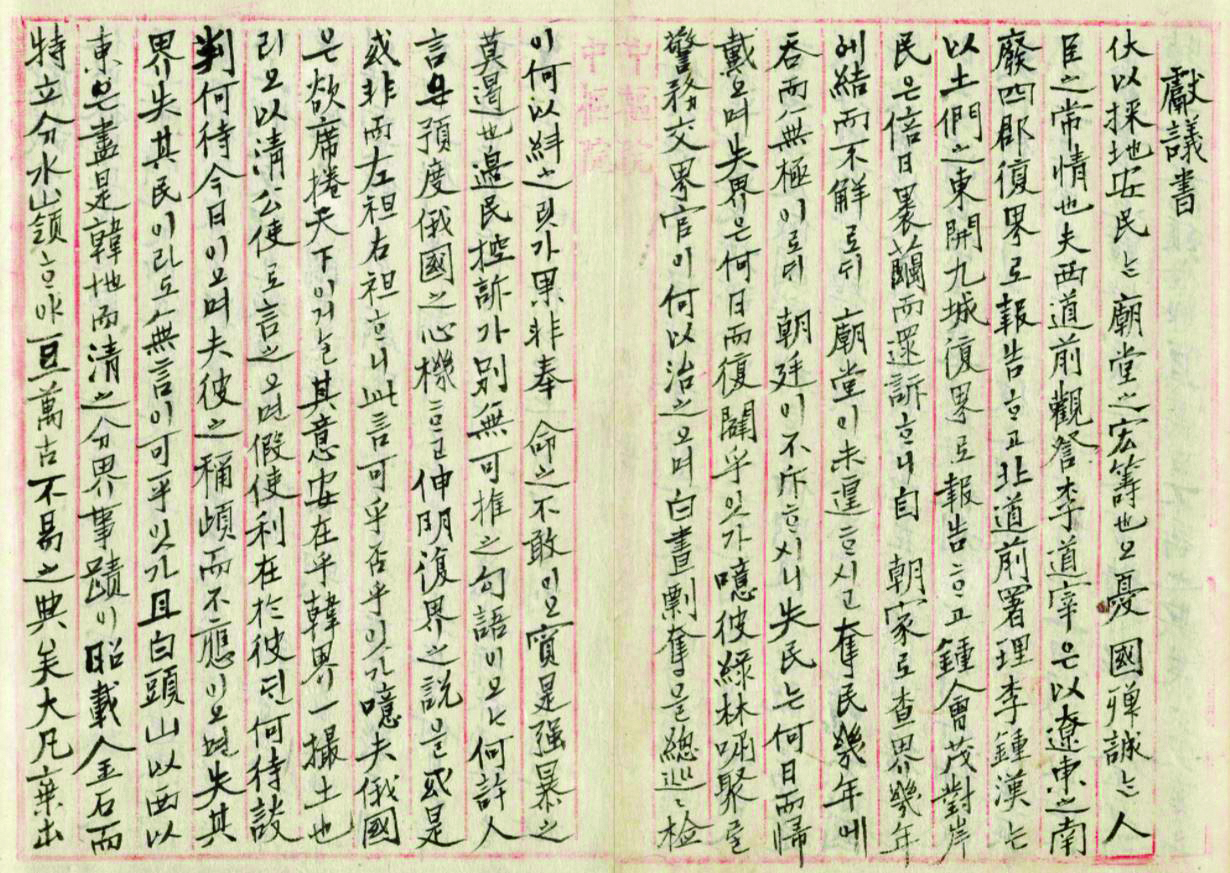 獻議書
伏以採地安民는 廟堂之宏籌也오 憂 國殫誠는 人
臣之常情也夫西道前觀詧李道宰은以遼東之南
廢四郡復界로報告하고北道前署理李鍾漢는
以土們之東開九城復界로報告하고鍾會茂對岸
民은倍日裹繭而還訴하니自 朝家로查界幾年
에結而不解로되 廟堂이未遑하시고奪民幾年에
呑而無極이로되 朝廷이不斥하시니失民는何日而歸
戴오며失界은何日而復闢乎잇가噫彼綠林嘯聚를
警務交界官이何以治之오며白晝剽奪을總巡巡檢
이何以糾之릿가果非奉 命之不敢이오實是强暴之
莫遏也邊民控訴가別無可推之句語이오는何許人
言은預度俄國之心機하고伸明復界之說을或是
或非而左袒右袒하니此言可乎否乎잇가噫夫俄國
은欲席捲天下이거늘其意安在乎韓界一撮土也
리오以清公使로言之오면假使利在於彼된何待談
判何待今日이오며夫彼之稱頉而不應이오면失其
界失其民이라도無言이可乎잇가且白頭山以西以
東은盡是韓地而清之分界事蹟이昭載金石而
特立分水山嶺하야亘萬古不易之典矣大凡棄出
中樞院
中樞院